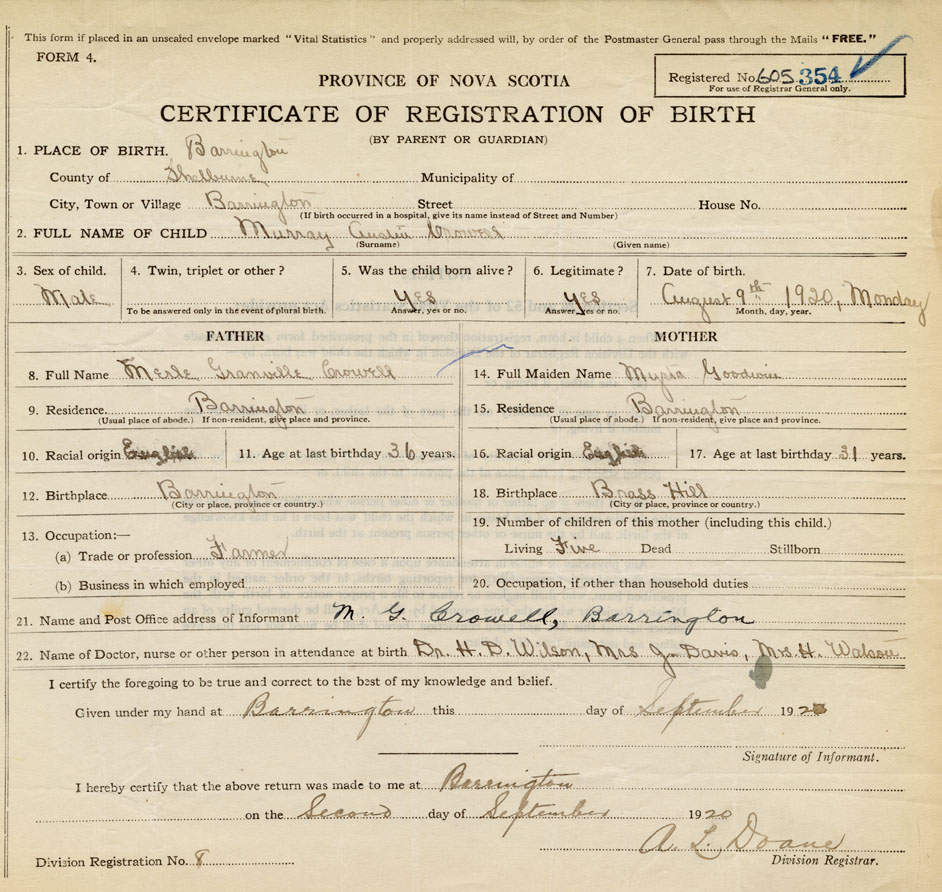 This form if placed in an unsealed envelope marked "Vital Statistics" and properly addressed will, by order of the Postmaster General pass through the Mails "FREE."
FORM 4.
Registered No. 605 354
For use of Registrar General only.
PROVINCE OF NOVA SCOTIA
CERTIFICATE OF REGISTRATION OF BIRTH
(BY PARENT OR GUARDIAN)
1. PLACE OF BIRTH. Barrington
County of Shelburne Municipality of
City, Town or Village Barrington Street House No.
(If birth occurred in a hospital, give its name instead of Street and Number)
2. FULL NAME OF CHILD Murray Austin Crowell
(Surname) (Given name)
3. Sex of child. 4. Twin, triplet or other? 5. Was the child born alive? 6. Legitimate? 7. Date of birth.
Male Yes Yes August 9th 1920, Monday
To be answered only in the event of plural birth. Answer, yes or no. Answer, yes or no. Month, day, year.
FATHER MOTHER
8. Full Name Merle Granville Crowell 14. Full Maiden Name Goodwin
9. Residence. Barrington 15. Residence Barrington
(Usual place of abode.) If non-resident, give place and province. (Usual place of abode.) If non-resident, give place and province.
10. Racial origin English 11. Age at last birthday 36 years. 16. Racial origin English 17. Age at last birthday 31 years.
12. Birthplace Barrington 18. Birthplace Brass Hill
(City or place, province or country.) (City or place, province or country.)
13. Occupation:— 19. Number of children of this mother (including this child.)
(a) Trade or profession Farmer Living Five Dead Stillborn
(b) Business in which employed 20. Occupation, if other than household duties
21. Name and Post Office address of Informant M. G. Crowell, Barrington
22. Name of Doctor, nurse or other person in attendance at birth Dr. H. D. Wilson, Mrs J. Davis, Mrs. H. Watson
I certify the foregoing to be true and correct to the best of my knowledge and belief.
Given under my hand at Barrington this day of September 1920
Signature of Informant.
I hereby certify that the above return was made to me at Barrington
on the Second day of September 1920
A. L. Doane
Division Registration No. 8 Division Registrar.